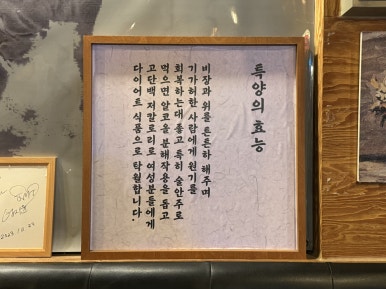 특양의 효능
비장과 위를 튼튼하 해주며
기가허한 사람에게 원기를
회복하는데 좋고 특히 술안주로
먹으면 알코올 분해작용을 돕고
고단백 저칼로리로 여성분들에게
다이어트 식품으로 탁월합니다.